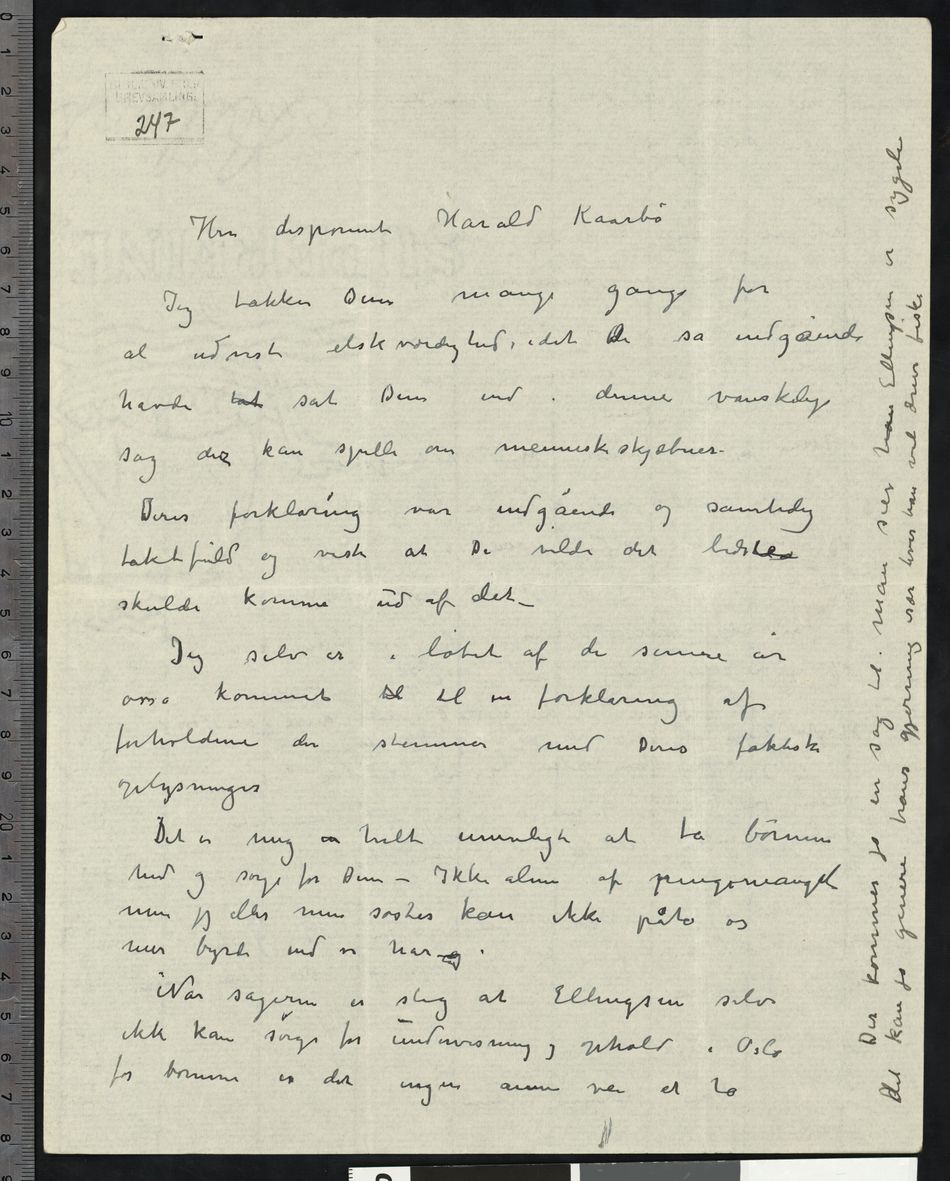 247
Hrr disponent Harald Kaarbø
Jeg takker Dem mange gange for
al udvist elskværdighed, idet De så indgående
havde tat sat Dem ind i denne vanskelige
sag der kan spille om menneskeskjæbner.
Deres forklaring var indgående og samtidig
taktfuld og viste at De vilde det bedste
skulde komme ud af det –
Jeg selv er i løbet af de senere år
osså kommet til til en forklaring af
forholdene der stemmer med Deres faktiske
oplysninger
Det er mig helt umuligt at ta børnene
hid og sørge for Dem – Ikke alene af pengemangel
men jeg eller min søster kan ikke påta os
mer byrde end vi har og.
Når sagerne er slig at Ellingsen selv
ikk kan sørge for undervisning og ophold i Oslo
for børnene er det ingen anne vei at ta
Der kommer jo en sag til. man sier han Ellingsen er sygelig
det kan jo genere hans gjerning især hvis han vil drive fiske